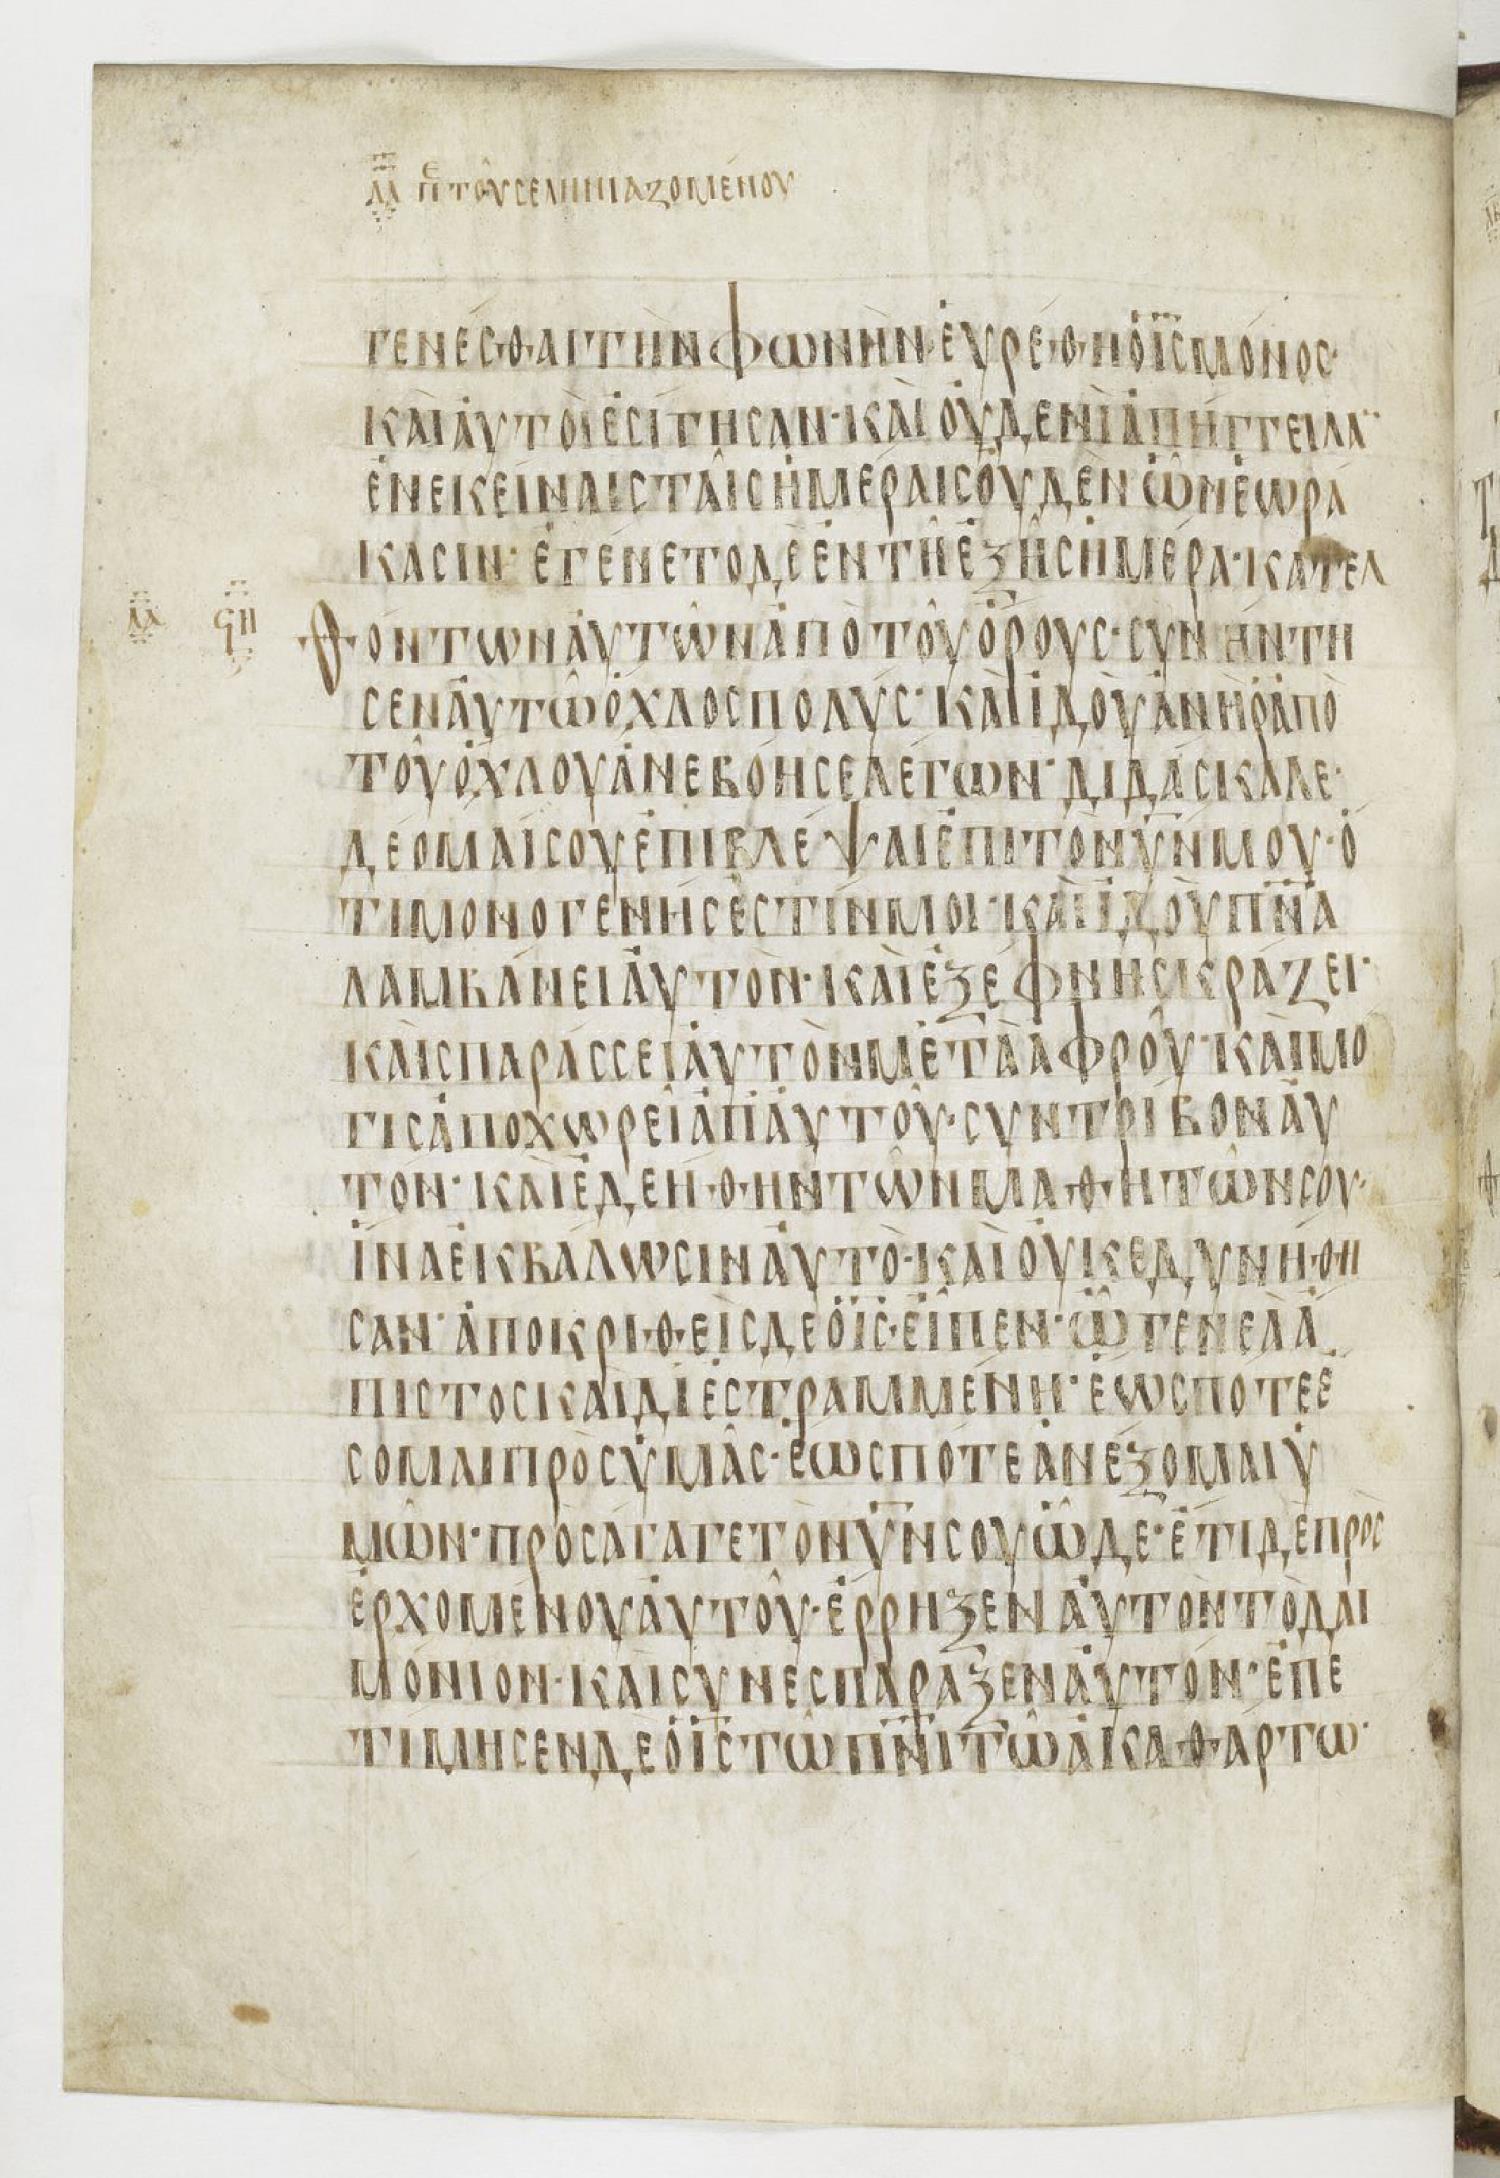 ΛΑ ΠΕ ΤΟΥ ΣΕΛΗΝΙΑΖΟΜΕΝΟΥ
ΓΕΝΕΣΘΑΙ ΤΗΝ ΦΩΝΗΝ· ΕΥΡΕΘΗ Ο ΙΣ ΜΟΝΟΣ·
ΚΑΙ ΑΥΤΟΙ ΕΣΙΓΗΣΑΝ· ΚΑΙ ΟΥΔΕΝΙ ΑΠΗΓΓΕΙΛΑ
ΕΝ ΕΚΕΙΝΑΙΣ ΤΑΙΣ ΗΜΕΡΑΙΣ ΟΥΔΕΝ ΩΝ ΕΩΡΑ
ΚΑΣΙΝ· ΕΓΕΝΕΤΟ ΔΕ ΕΝ ΤΗ ΕΞΗΣ ΗΜΕΡΑ· ΚΑΤΕΛ
ΛΑ ϞΗ ΘΟΝΤΩΝ ΑΥΤΩΝ ΑΠΟ ΤΟΥ ΟΡΟΥΣ· ΣΥΝΗΝΤΗ
ΣΕΝ ΑΥΤΩ ΟΧΛΟΣ ΠΟΛΥΣ· ΚΑΙ ΙΔΟΥ ΑΝΗΡ ΑΠΟ
ΤΟΥ ΟΧΛΟΥ ΑΝΕΒΟΗΣΕ ΛΕΓΩΝ· ΔΙΔΑΣΚΑΛΕ·
ΔΕΟΜΑΙ ΣΟΥ ΕΠΙΒΛΕΨΑΙ ΕΠΙ ΤΟΝ ΥΝ ΜΟΥ· Ο
ΤΙ ΜΟΝΟΓΕΝΗΣ ΕΣΤΙΝ ΜΟΙ· ΚΑΙ ΙΔΟΥ ΠΝΑ
ΛΑΜΒΑΝΕΙ ΑΥΤΟΝ· ΚΑΙ ΕΞΕΦΝΗΣ ΚΡΑΖΕΙ·
ΚΑΙ ΣΠΑΡΑΣΣΕΙ ΑΥΤΟΝ ΜΕΤΑ ΑΦΡΟΥ· ΚΑΙ ΜΟ
ΓΙΣ ΑΠΟΧΩΡΕΙ ΑΠ ΑΥΤΟΥ· ΣΥΝΤΡΙΒΟΝ ΑΥ
ΤΟΝ· ΚΑΙ ΕΔΕΗΘΗΝ ΤΩΝ ΜΑΘΗΤΩΝ ΣΟΥ·
ΙΝΑ ΕΚΒΑΛΩΣΙΝ ΑΥΤΟ· ΚΑΙ ΟΥΚ ΕΔΥΝΗΘΗ
ΣΑΝ· ΑΠΟΚΡΙΘΕΙΣ ΔΕ Ο ΙΣ· ΕΙΠΕΝ· Ω ΓΕΝΕΑ Α
ΠΙΣΤΟΣ ΚΑΙ ΔΙΕΣΤΡΑΜΜΕΝΗ· ΕΩΣ ΠΟΤΕ Ε
ΣΟΜΑΙ ΠΡΟΣ ΥΜΑΣ· ΕΩΣ ΠΟΤΕ ΑΝΕΞΟΜΑΙ Υ
ΜΩΝ· ΠΡΟΣΑΓΑΓΕ ΤΟΝ ΥΝ ΣΟΥ ΩΔΕ· ΕΤΙ ΔΕ ΠΡΟΣ
ΕΡΧΟΜΕΝΟΥ ΑΥΤΟΥ· ΕΡΡΗΞΕΝ ΑΥΤΟΝ ΤΟ ΔΑΙ
ΜΟΝΙΟΝ· ΚΑΙ ΣΥΝΕΣΠΑΡΑΞΕΝ ΑΥΤΟΝ· ΕΠΕ
ΤΙΜΗΣΕΝ ΔΕ Ο ΙΣ ΤΩ ΠΝΙ ΤΩ ΑΚΑΘΑΡΤΩ·